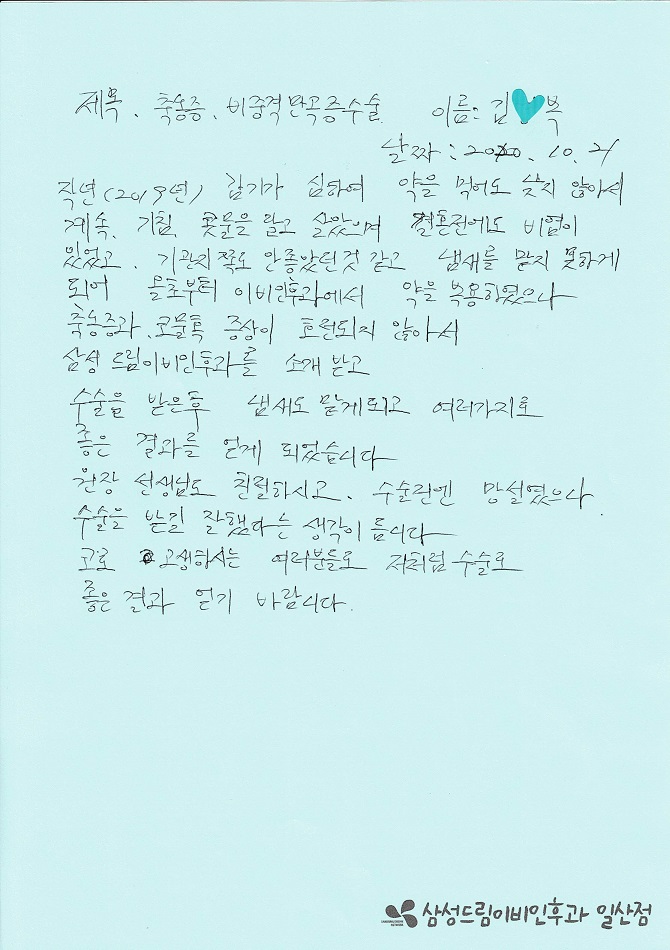 제목. 축농증. 비중격만곡증수술 이름: 김 복
날짜: 2020. 10. 21
작년(2019년) 감기가 심하여 약을 먹어도 낫지 않아서
계속, 기침, 콧물을 달고 살았으며 결혼전에도 비염이
있었고. 기관지쪽도 안좋았던것 같고 냄새를 맡지 못하게
되어 올초부터 이비인후과에서 약을 복용하였으나
축농증과. 코물혹 증상이 호전되지 않아서
삼성드림이비인후과를 소개받고
수술을 받은후 냄새도 맡게되고 여러가지로
좋은 결과를 얻게 되었습니다
원장 선생님도 친절하시고. 수술전엔 망설였으나
수술을 받길 잘했다는 생각이 듭니다
코로 고생하시는 여러분들도 저처럼 수술로
좋은결과 얻기 바랍니다.
삼성드림이비인후과 일산점